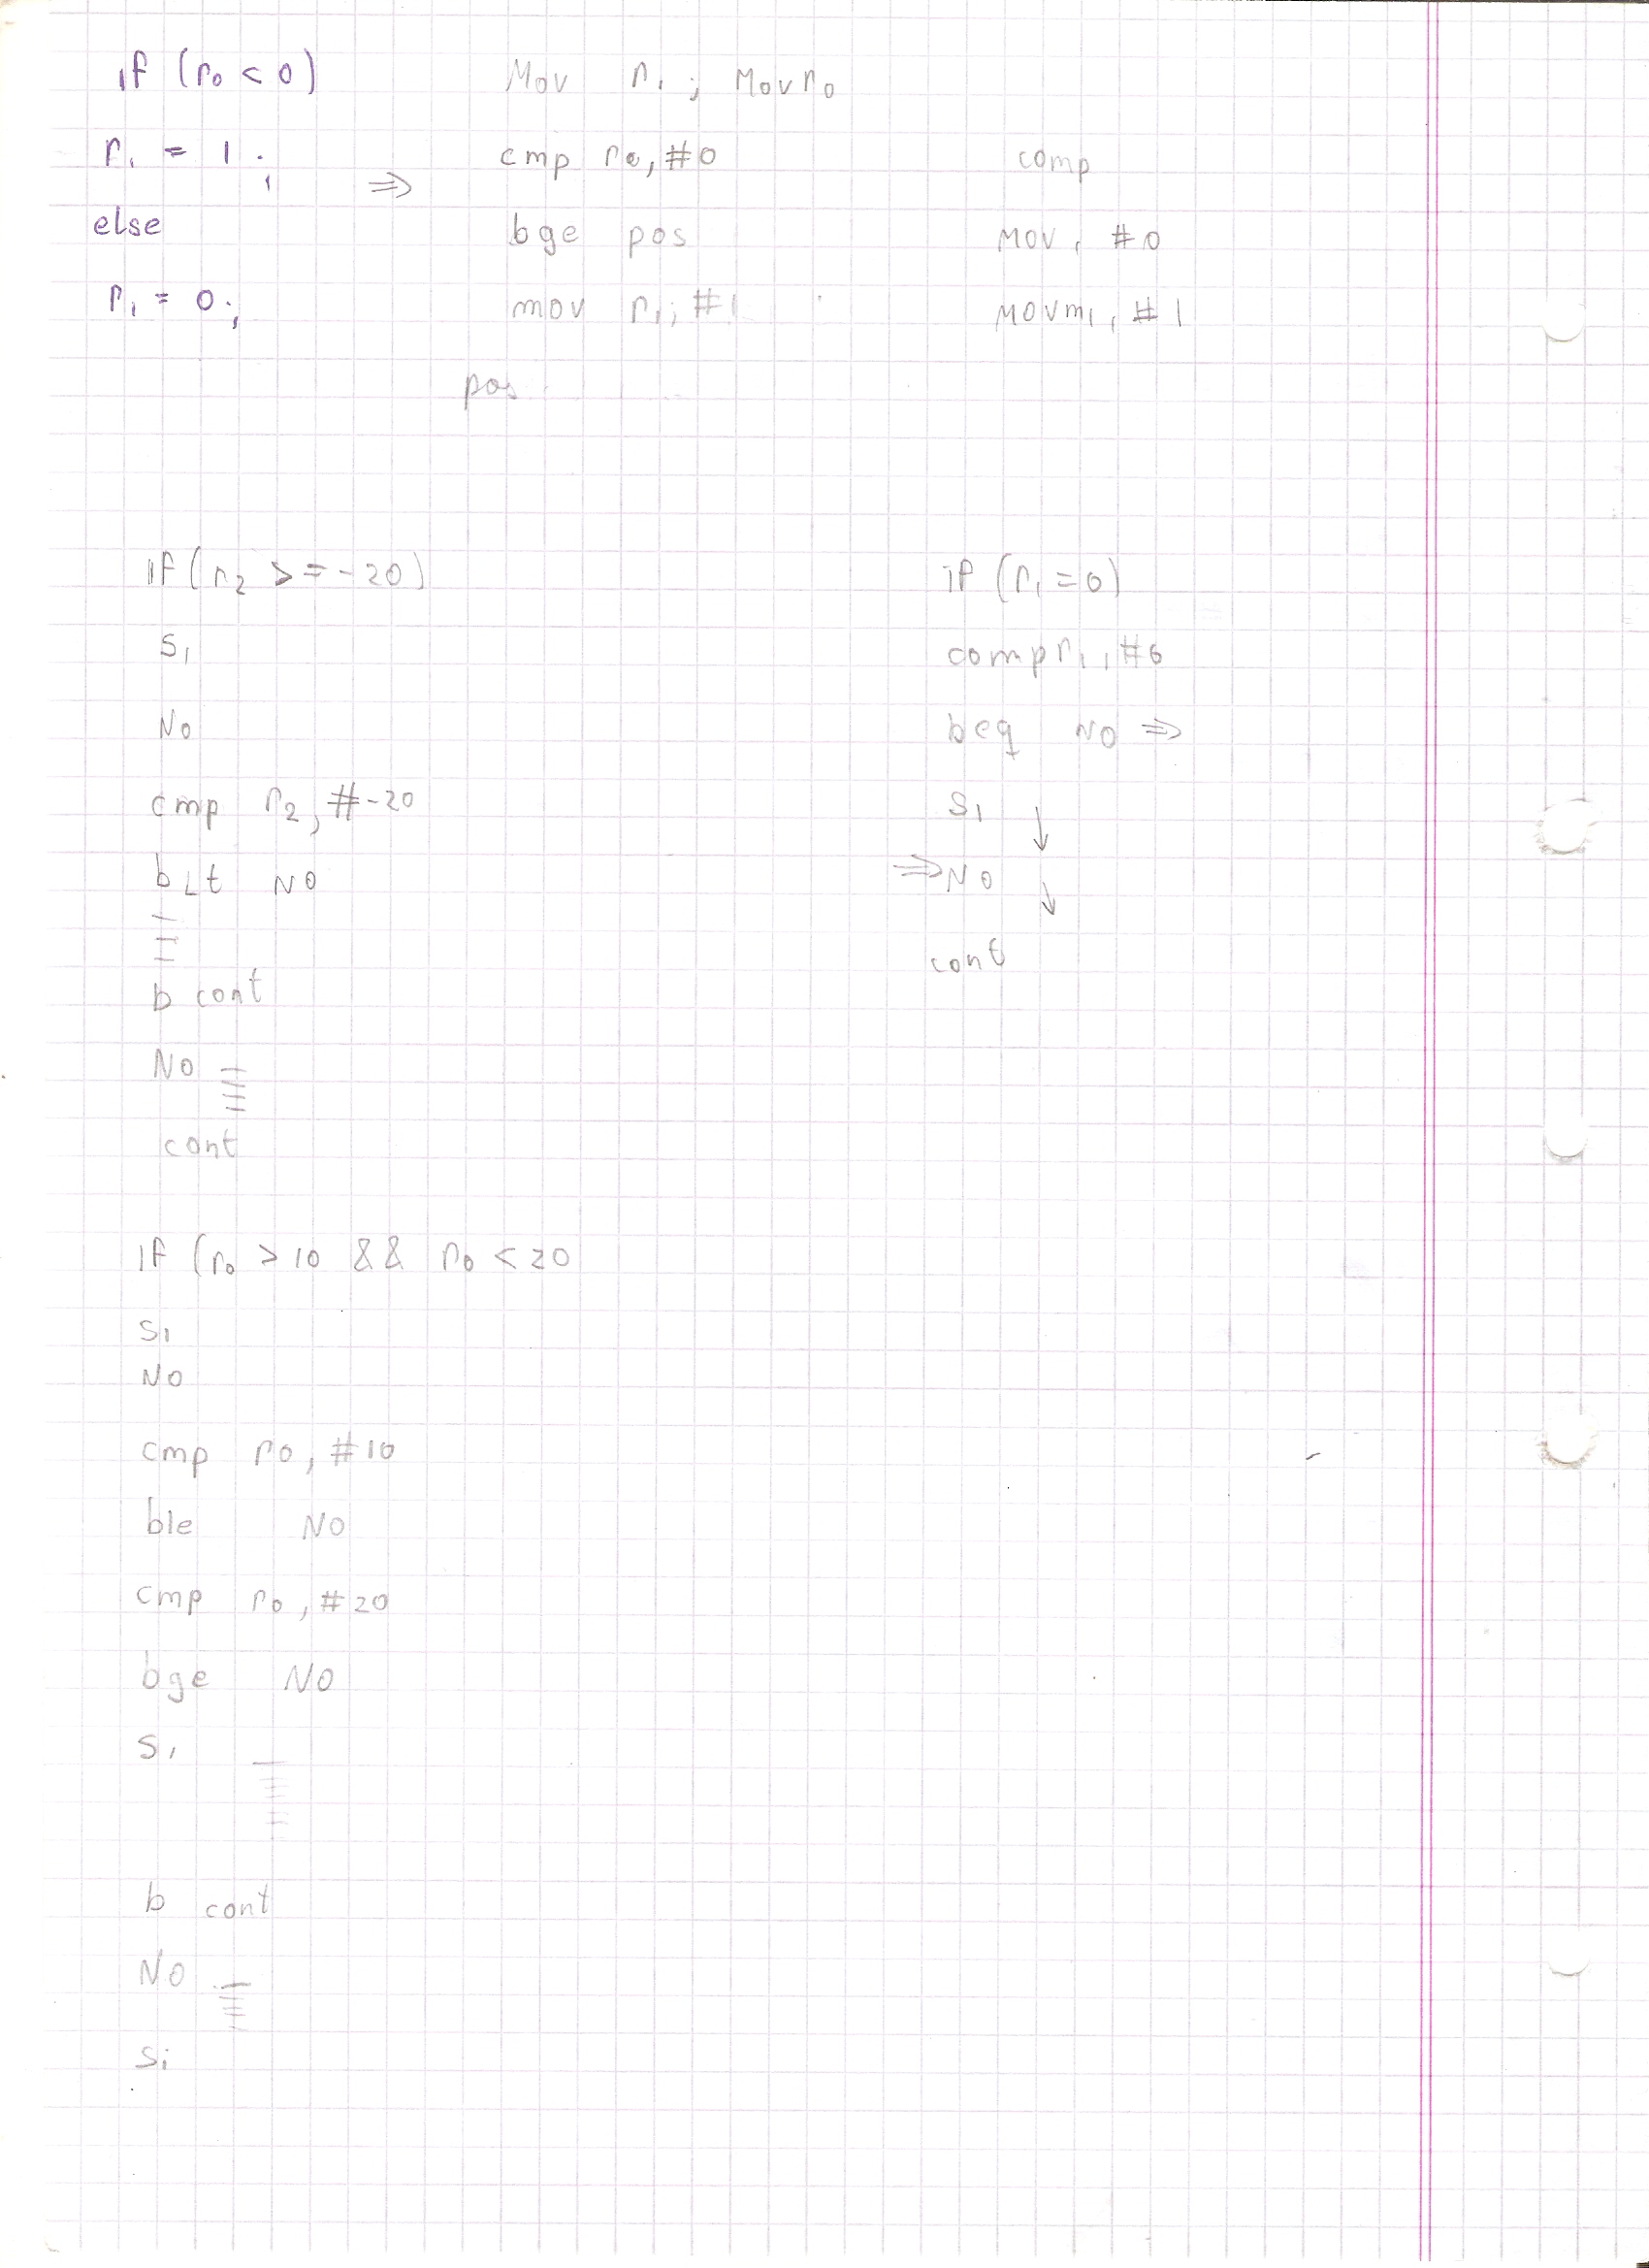 if (r0 < 0)
r1 = 1 ;
else
r1 = 0 ;
⇒
Mov r1 ; Mov r0
cmp r0, #0
bge pos
mov r1, #1
pos
comp
Mov, #0
Movmi, #1
if (r2 >= -20)
Si
No
cmp r2, #-20
bLt NO
b cont
No
cont
if (r1 = 0)
comp r1, #0
beq NO ⇒
Si ↓
⇒ NO ↓
cont
If (r0 > 10 && r0 < 20
Si
No
cmp r0, #10
ble NO
cmp r0, #20
bge NO
Si
b cont
NO
Si